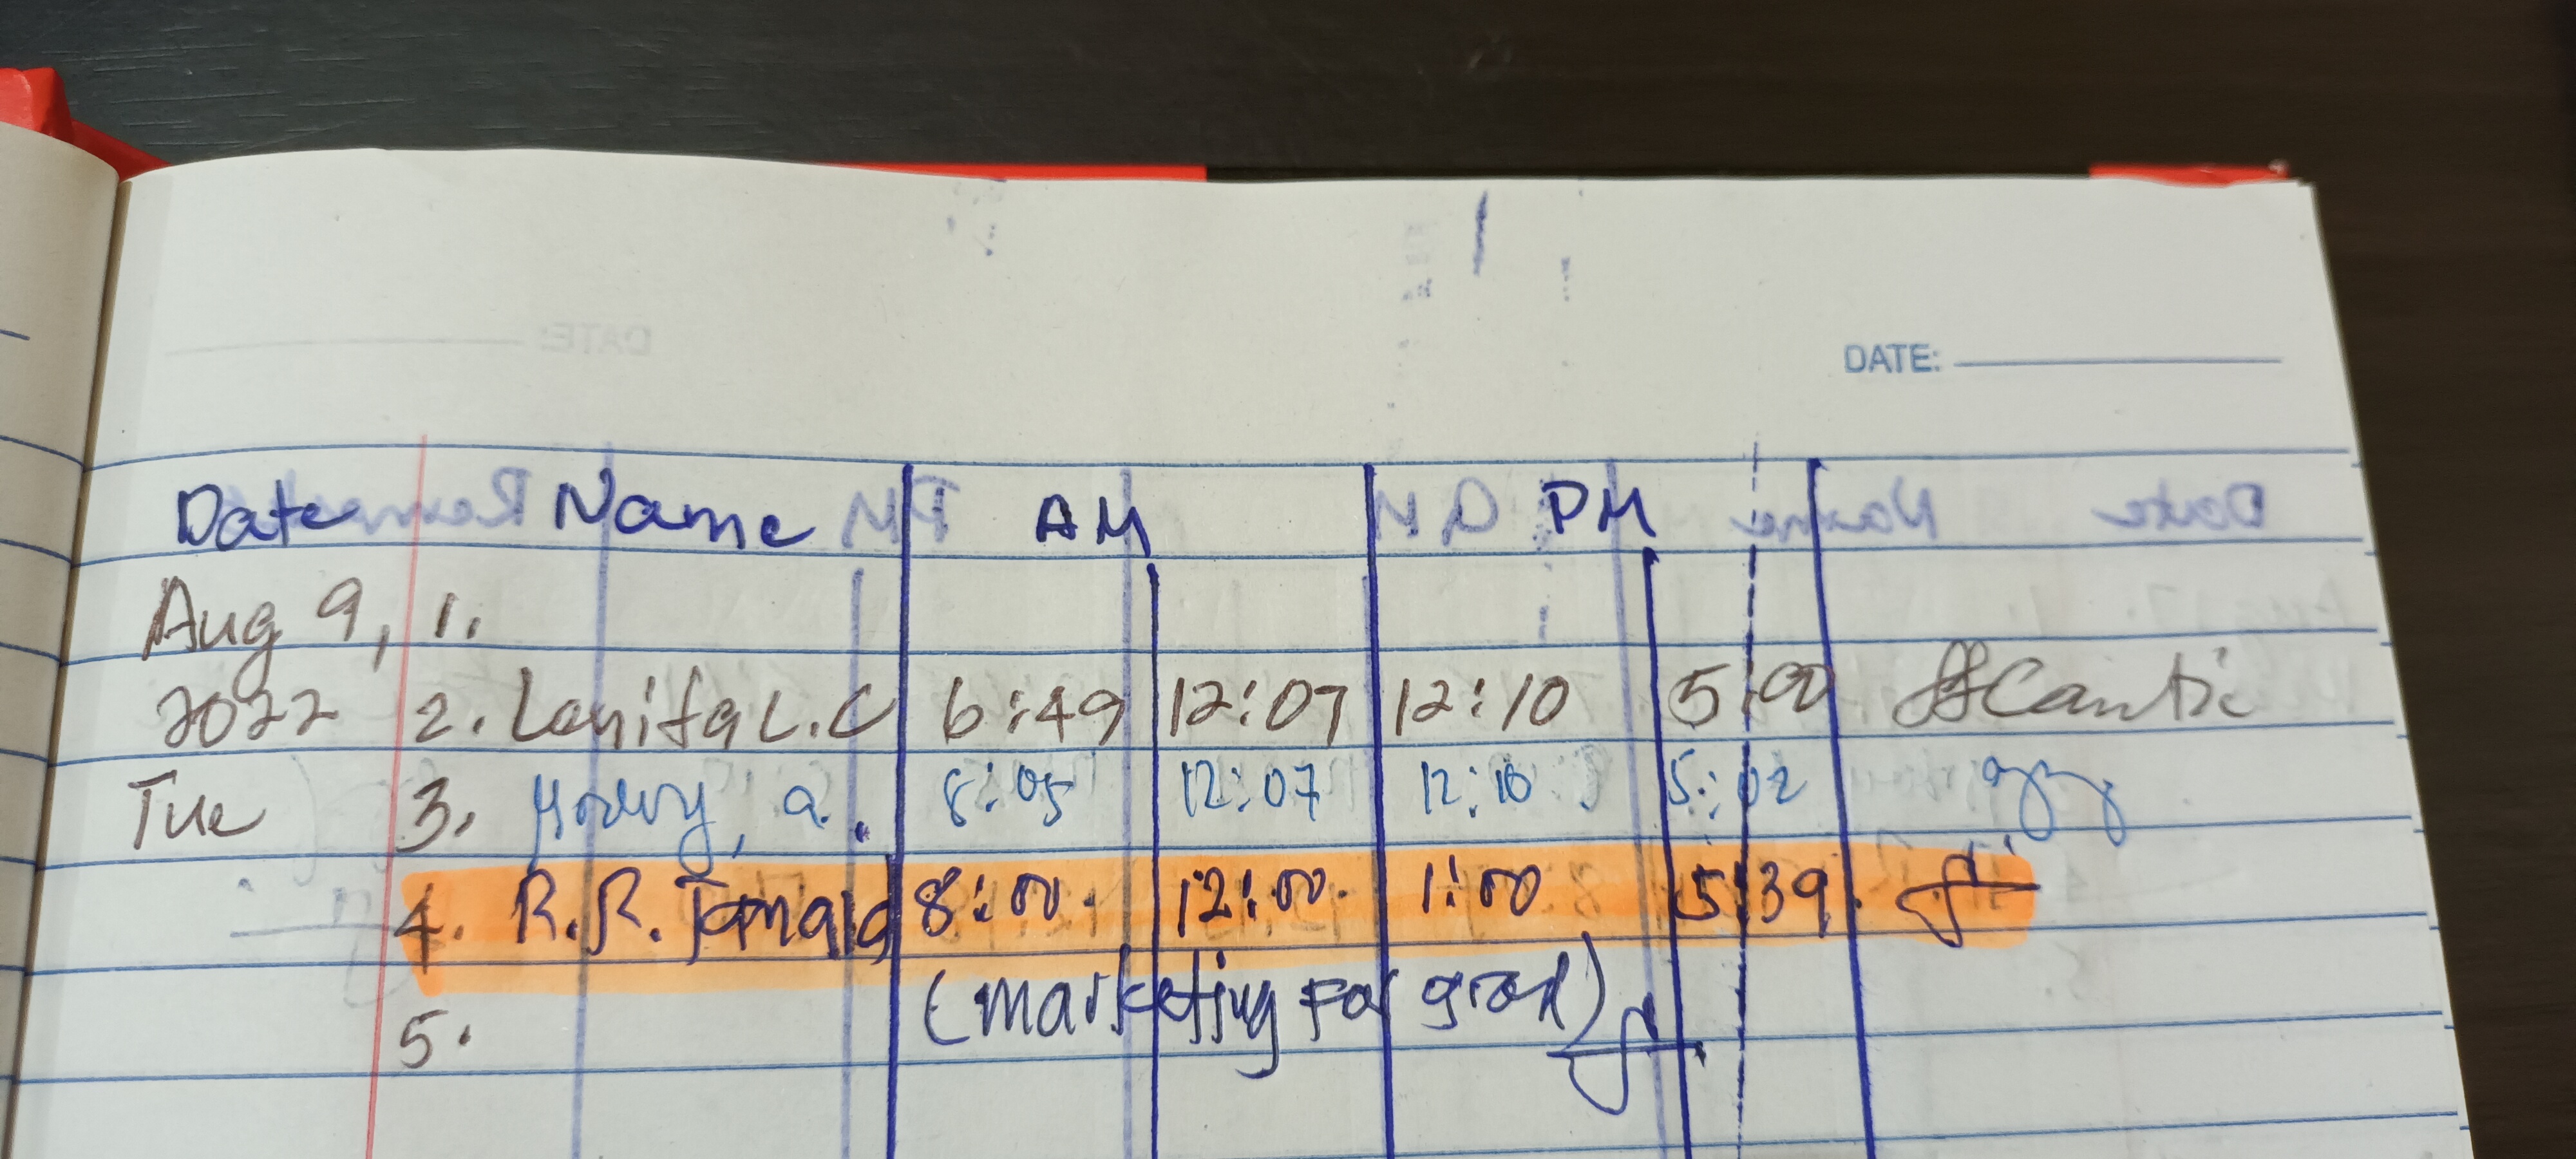 DATE:
Date Name AM PM
Aug 9, 1.
2022 2. Lanifa L.C 6:49 12:07 12:10 5:00
Tue 3. 8:05 12:07 12:10 5:02
4. R.R. 8:00. 12:00. 1:00 5:39.
(marketing for grad)
5.